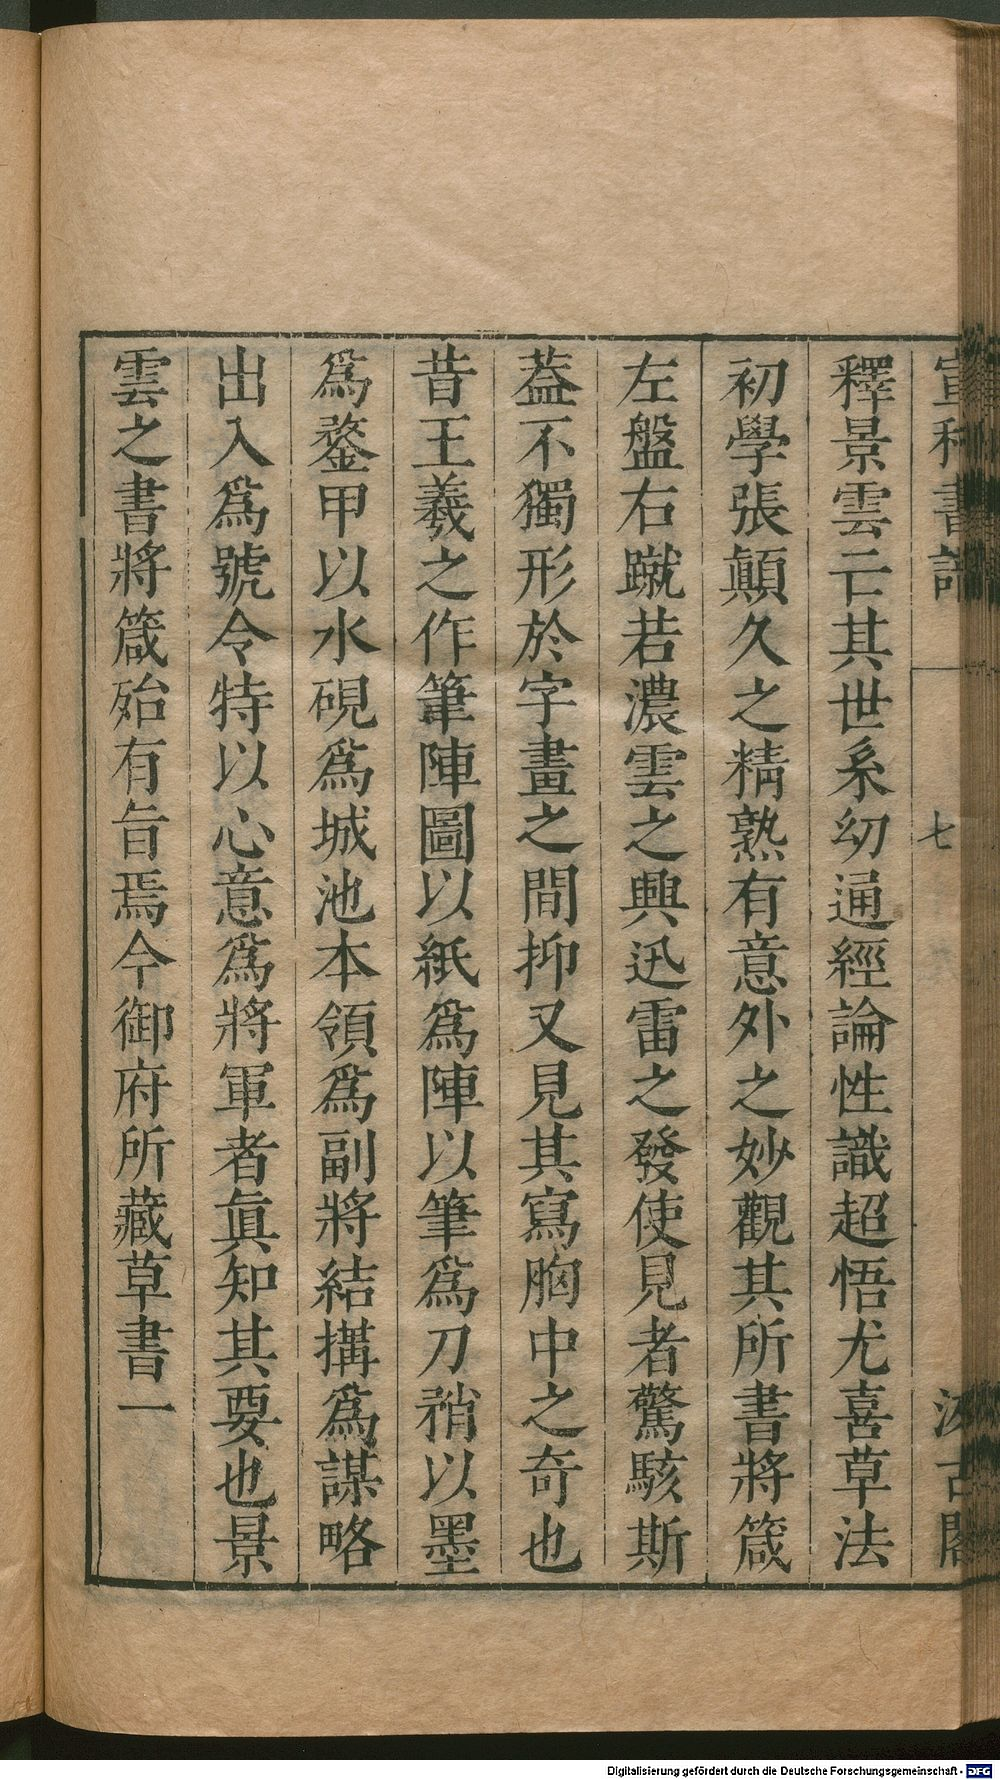 宣和書譜 七 汲古閣
釋景雲亡其世系幼通經論性識超悟尤喜草法
初學張顛久之精熟有意外之妙觀其所書將箴
左盤右蹴若濃雲之興迅雷之發使見者驚駭斯
葢不獨形於字畫之間抑又見其寫胸中之奇也
昔王羲之作筆陣圖以紙為陣以筆為刀矟以墨
為鍪甲以水硯為城池本領為副將結搆為謀略
出入為號令特以心意為將軍者眞知其要也景
雲之書將箴殆有旨焉今御府所藏草書一
Digitalisierung gefördert durch die Deutsche Forschungsgemeinschaft - DFG